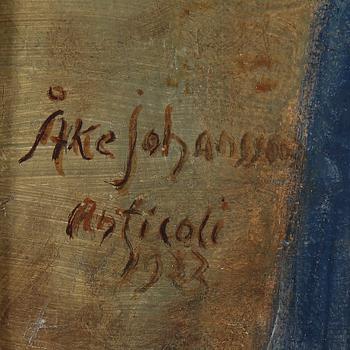 Åke Johansson
Anticoli
1922